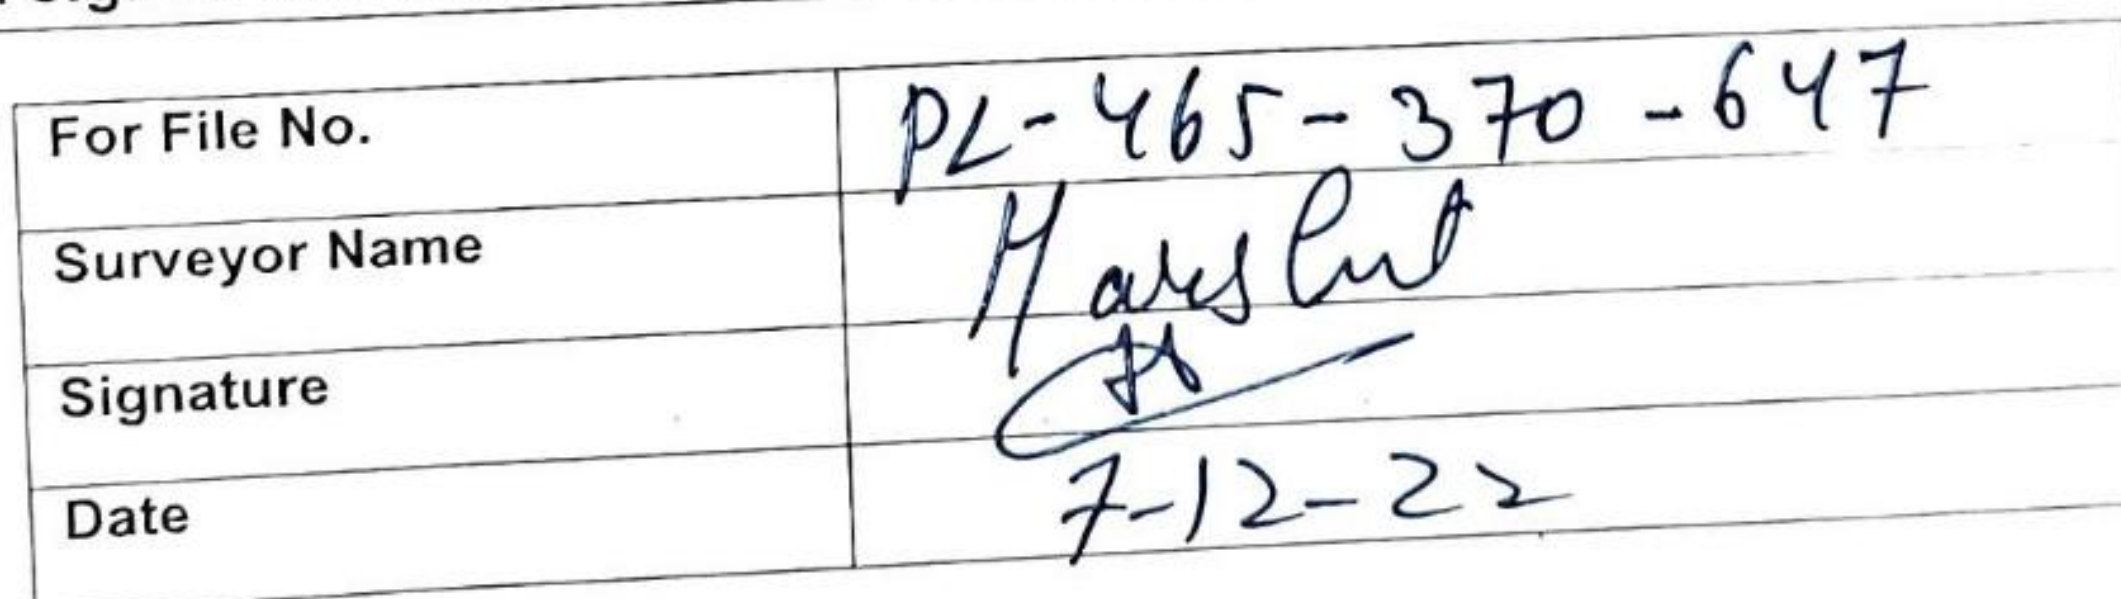 For File No. PL-465-370-647
Surveyor Name Harshit
Signature
Date 7-12-22